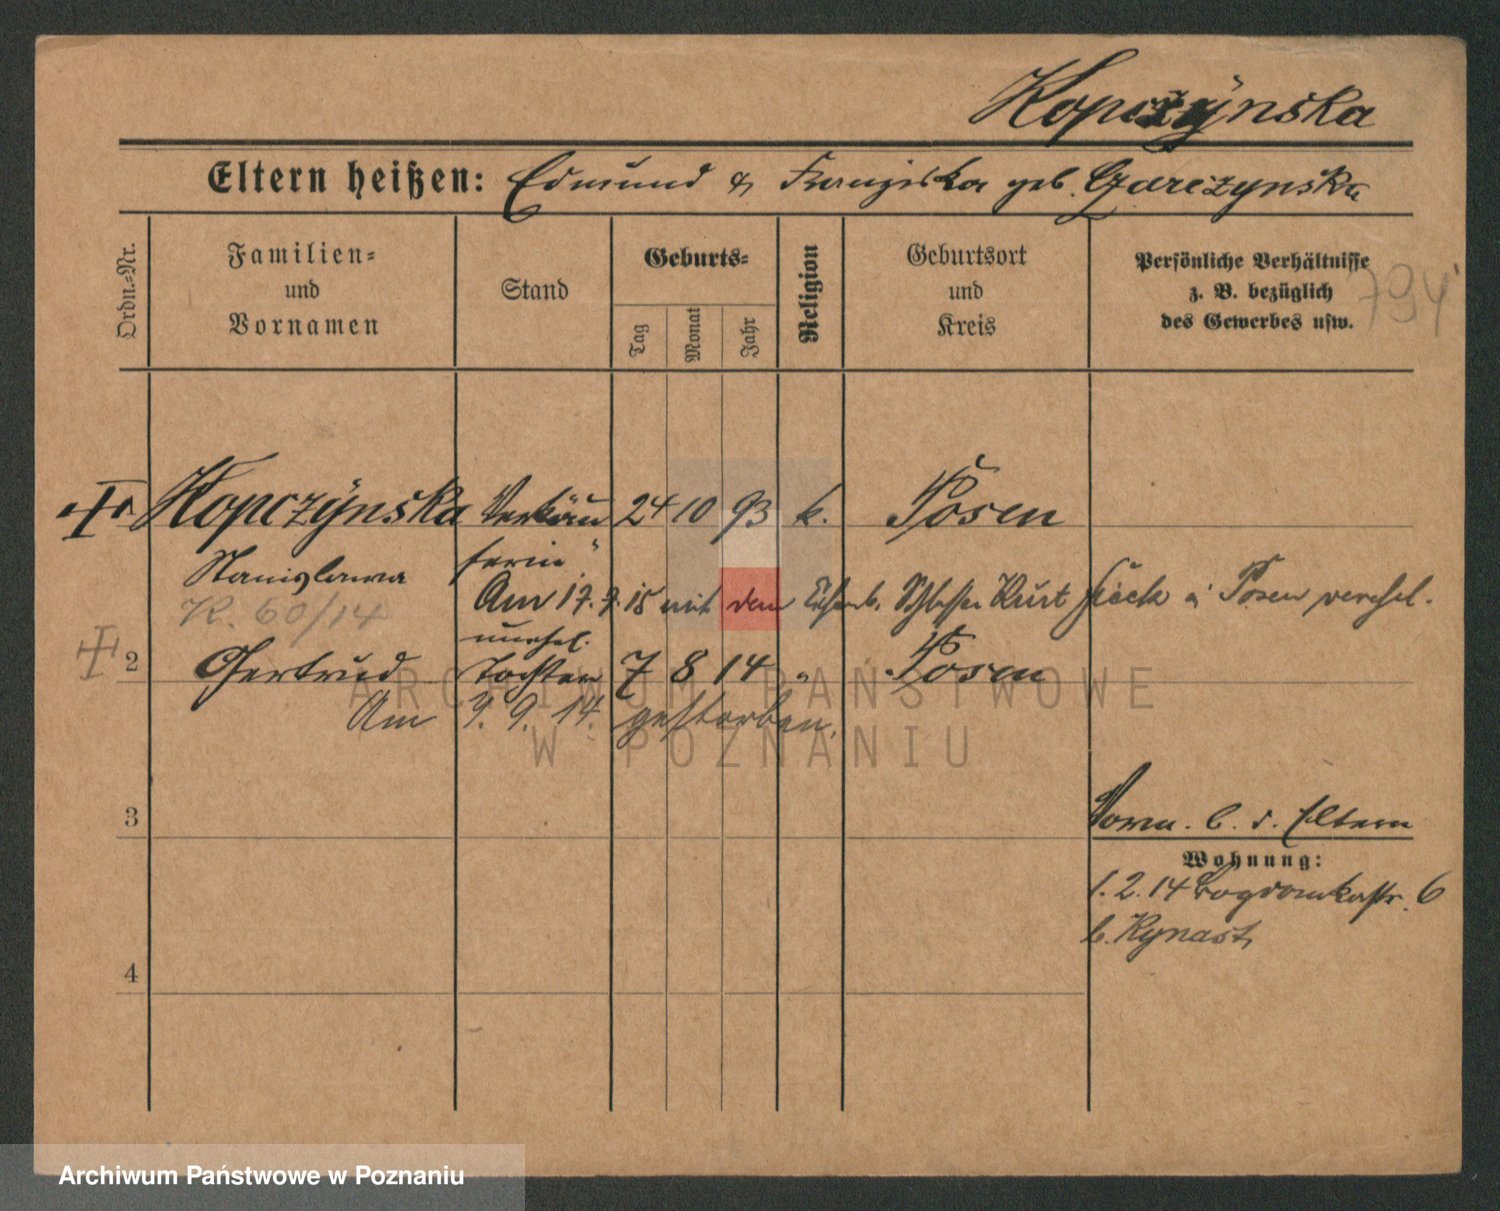 Kopczynska
Eltern heißen: Edmund & Franziska geb. Garczynska
Ordn.=Nr.
Familien=
und
Vornamen
Stand
Geburts=
Tag
Monat
Jahr
Religion
Geburtsort
und
Kreis
Persönliche Verhältnisse
z. B. bezüglich
des Gewerbes usw.
794
Kopczynska Verkäu 24 10 93 k. Posen
Stanislawa ferin
Am 17. 7. 15 mit dem Kurt Sieck Posen verehel.
K. 60/14
unehel.
2 Gertrud Tochter 7 8 14 " Posen
Am 9. 9. 14. gestorben.
3
Vorm. b. d. Eltern
Wohnung:
1. 2. 14 Bogdankastr. 6
b. Kynast
4
ARCHIWUM PAŃSTWOWE
W POZNANIU
Archiwum Państwowe w Poznaniu